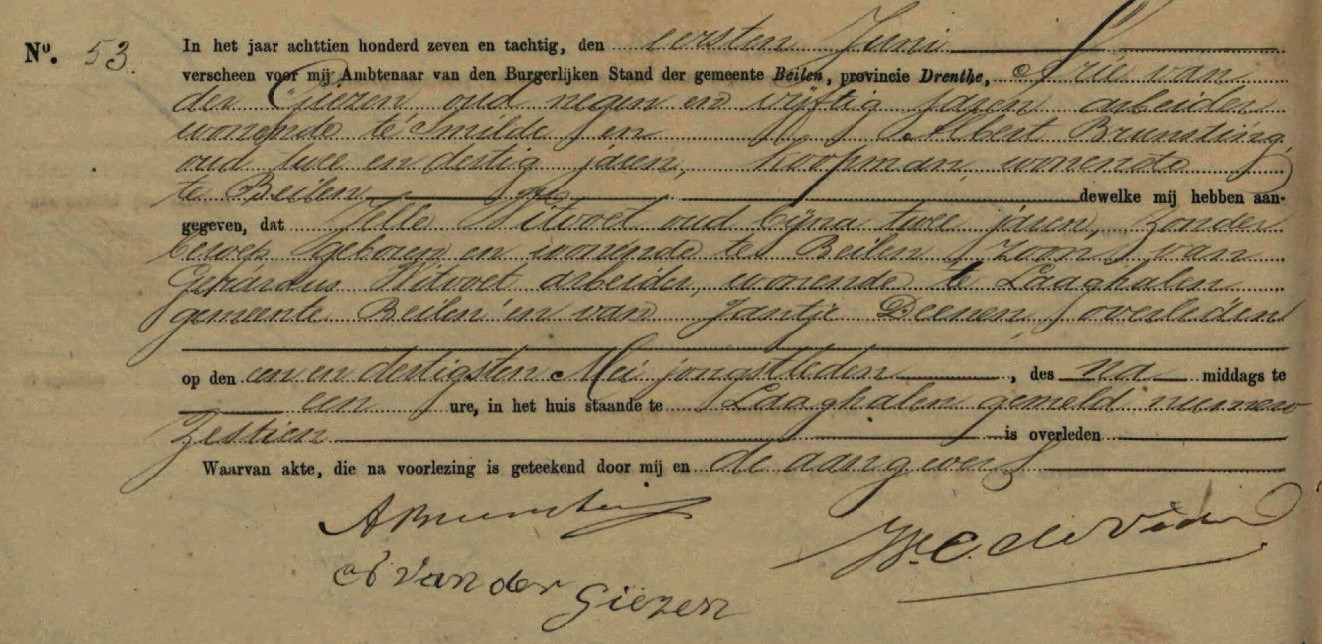 Nº. 53. In het jaar achttien honderd zeven en tachtig, den eersten Juni
verscheen voor mij Ambtenaar van den Burgerlijken Stand der gemeente Beilen, provincie Drenthe, Arie van
der Giezen oud negen en vijftig jaren arbeider
wonende te Smilde en Albert Brunsting
oud twee en dertig jaren, koopman wonende
te Beilen dewelke mij hebben aan-
gegeven, dat Jelle Witvoet oud bijna twee jaren, zonder
beroep geboren en wonende te Beilen zoon van
Gerardus Witvoet arbeider, wonende te Laaghalen
gemeente Beilen en van Jantje Deenen, overleden
op den een en dertigsten Mei jongstleden, des na middags te
een ure, in het huis staande te Laaghalen gemeld numero
zestien is overleden
Waarvan akte, die na voorlezing is geteekend door mij en de aangevers
A Brunsting
A van der Giezen